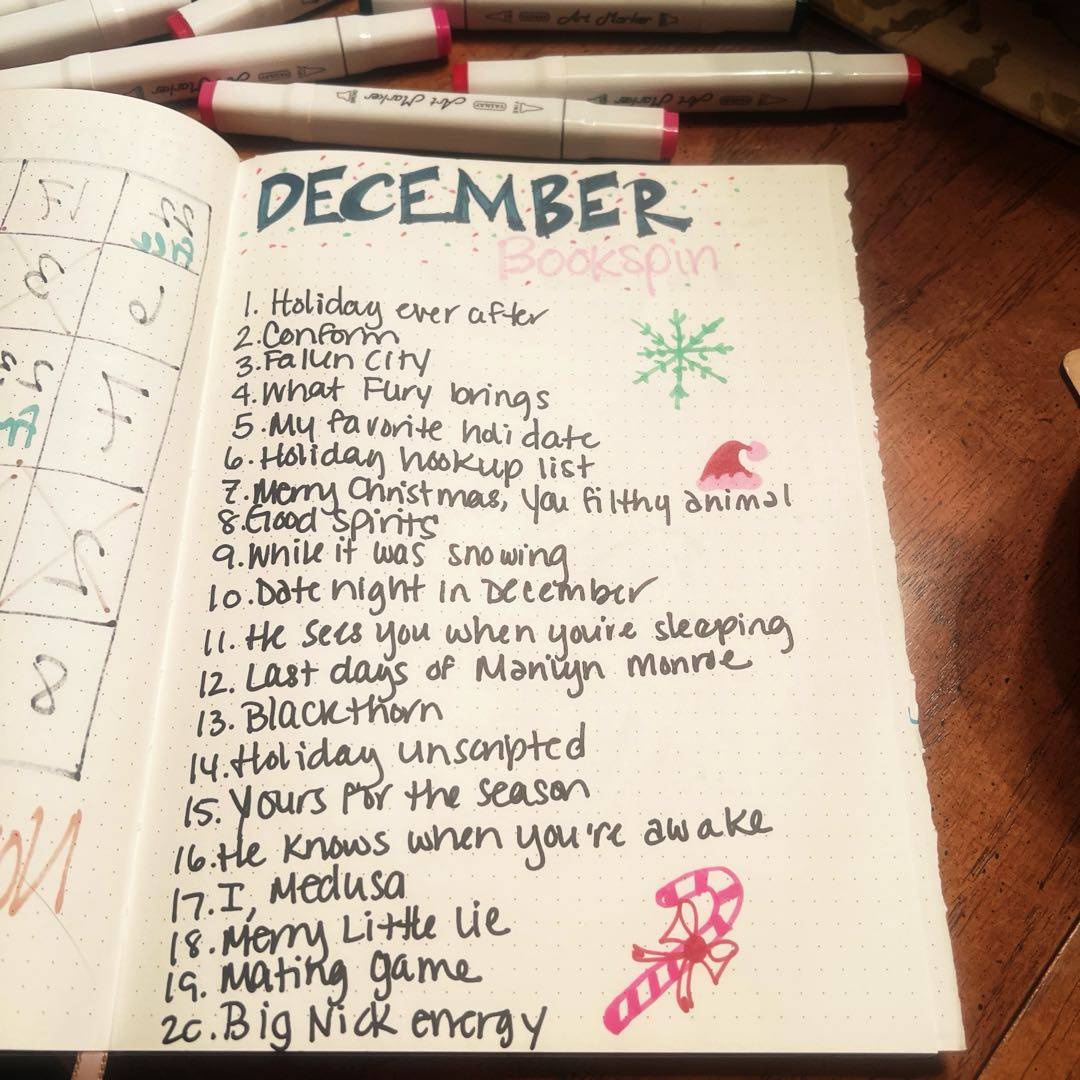 Art Marker
Art Marker
Art Marker
Art Marker
DECEMBER
Bookspin
1. Holiday ever after
2. Conform
3. Fallen City
4. What Fury brings
5. My favorite holidate
6. Holiday hookup list
7. Merry Christmas, You filthy animal
8. Good Spirits
9. While it was snowing
10. Date night in December
11. He sees you when you're sleeping
12. Last days of Marilyn monroe
13. Blackthorn
14. Holiday unscripted
15. Yours for the season
16. He knows when you're awake
17. I, Medusa
18. Merry Little Lie
19. Mating game
20. Big Nick energy